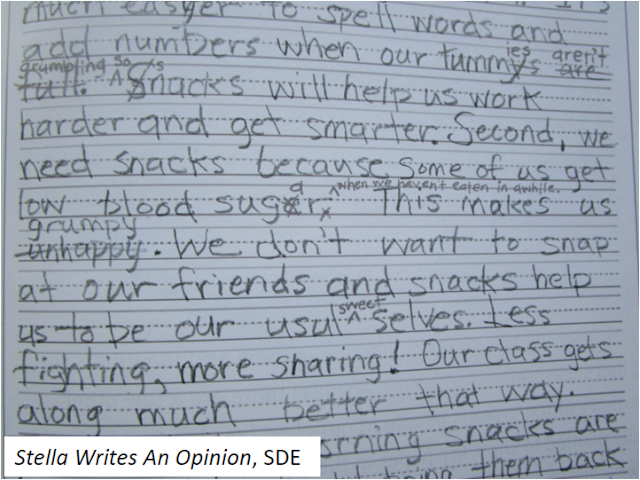 much easyer to spell words and
ies aren't
add numbers when our tummys are
grumpling so s
full. Snacks will help us work
harder and get smarter. Second, we
need snacks because some of us get
a when we haven't eaten in awhile.
low blood suger. This makes us
grumpy
unhappy. We don't want to snap
at our friends and snacks help
sweet
us to be our usul selves. Less
fighting, more sharing! Our class gets
along much better that way.
snacks are
them back
Stella Writes An Opinion, SDE